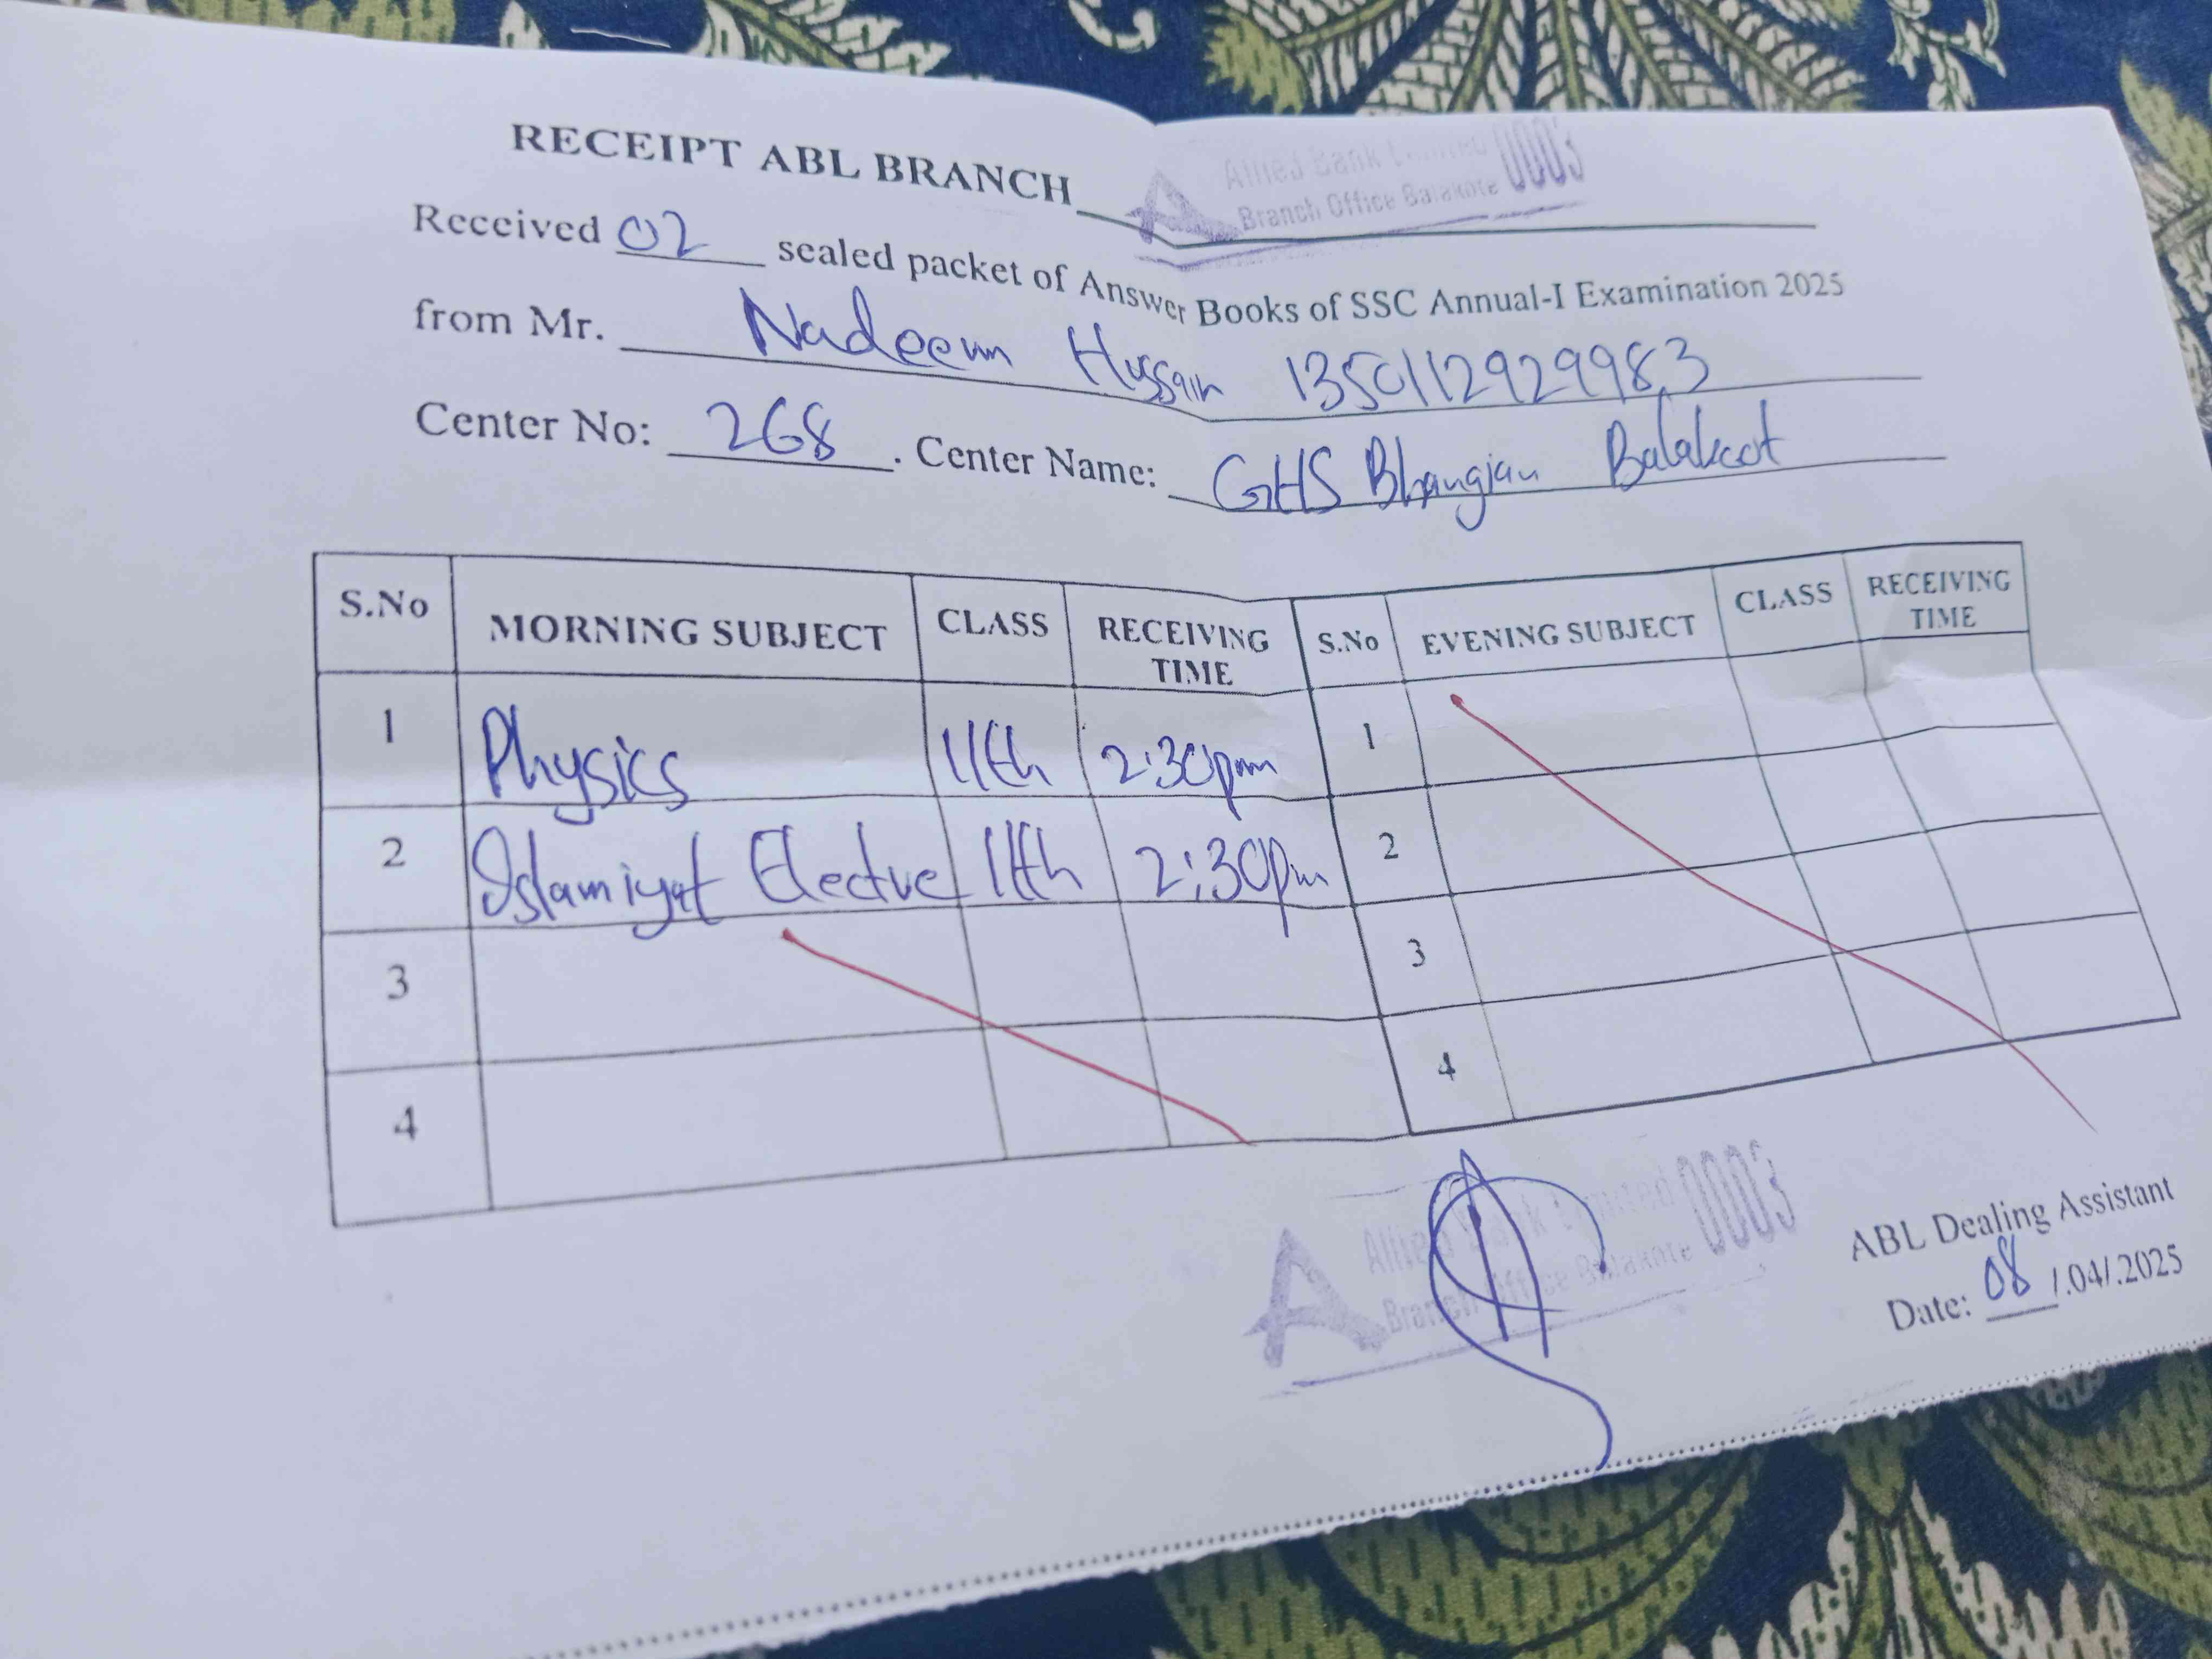 RECEIPT ABL BRANCH
Allied Bank Limited 0003
Branch Office Balakote
Received 02 sealed packet of Answer Books of SSC Annual-I Examination 2025
from Mr. Nadeem Hussain 1350112929983
Center No: 268 . Center Name: GHS Bhangian Balakoot
S.No MORNING SUBJECT CLASS RECEIVING TIME S.No EVENING SUBJECT CLASS RECEIVING TIME
1 Physics 11th 2:30pm 1
2 Islamiyat Elective 11th 2:30pm 2
3 3
4 4
Allied Bank Limited 0003
Branch Office Balakote
ABL Dealing Assistant
Date: 08/.04/.2025